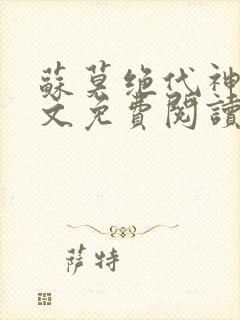 蘇莫绝代神
文免費閱讀
萨特